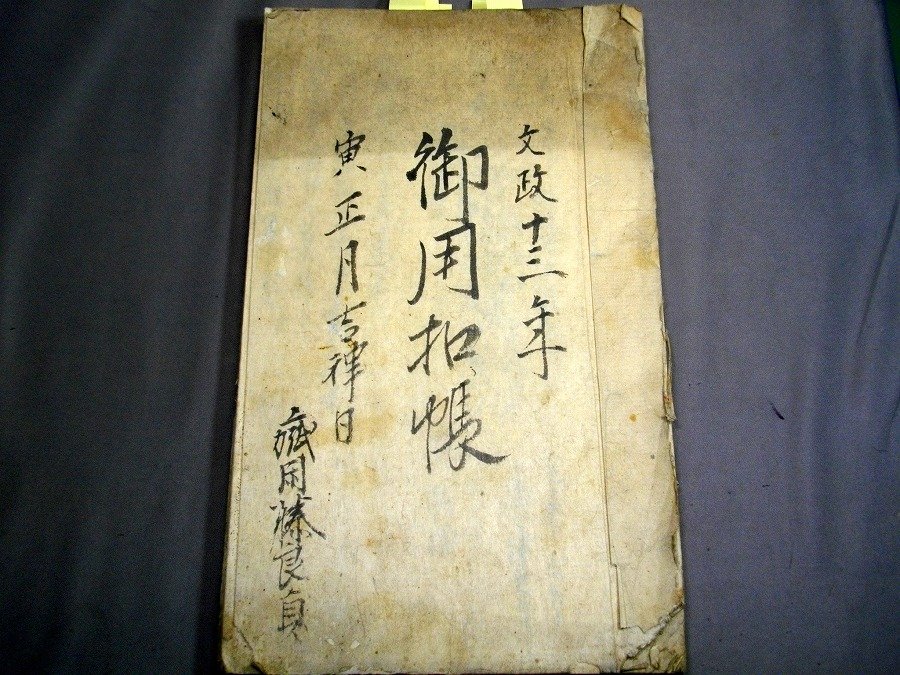 文政十三年
御用扣帳
寅正月吉祥日
藤良